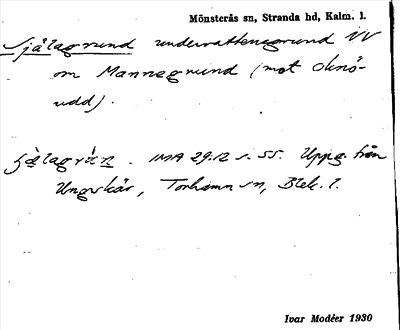 Mönsterås sn, Stranda hd, Kalm. l.
Själagrund undervattensgrund VV
om Mannegrund (mot Oknö-
udd).
IMA 29.12 s. 55. Uppg. från
Ungskär, Torhamn sn, Blek. l.
Ivar Modéer 1930